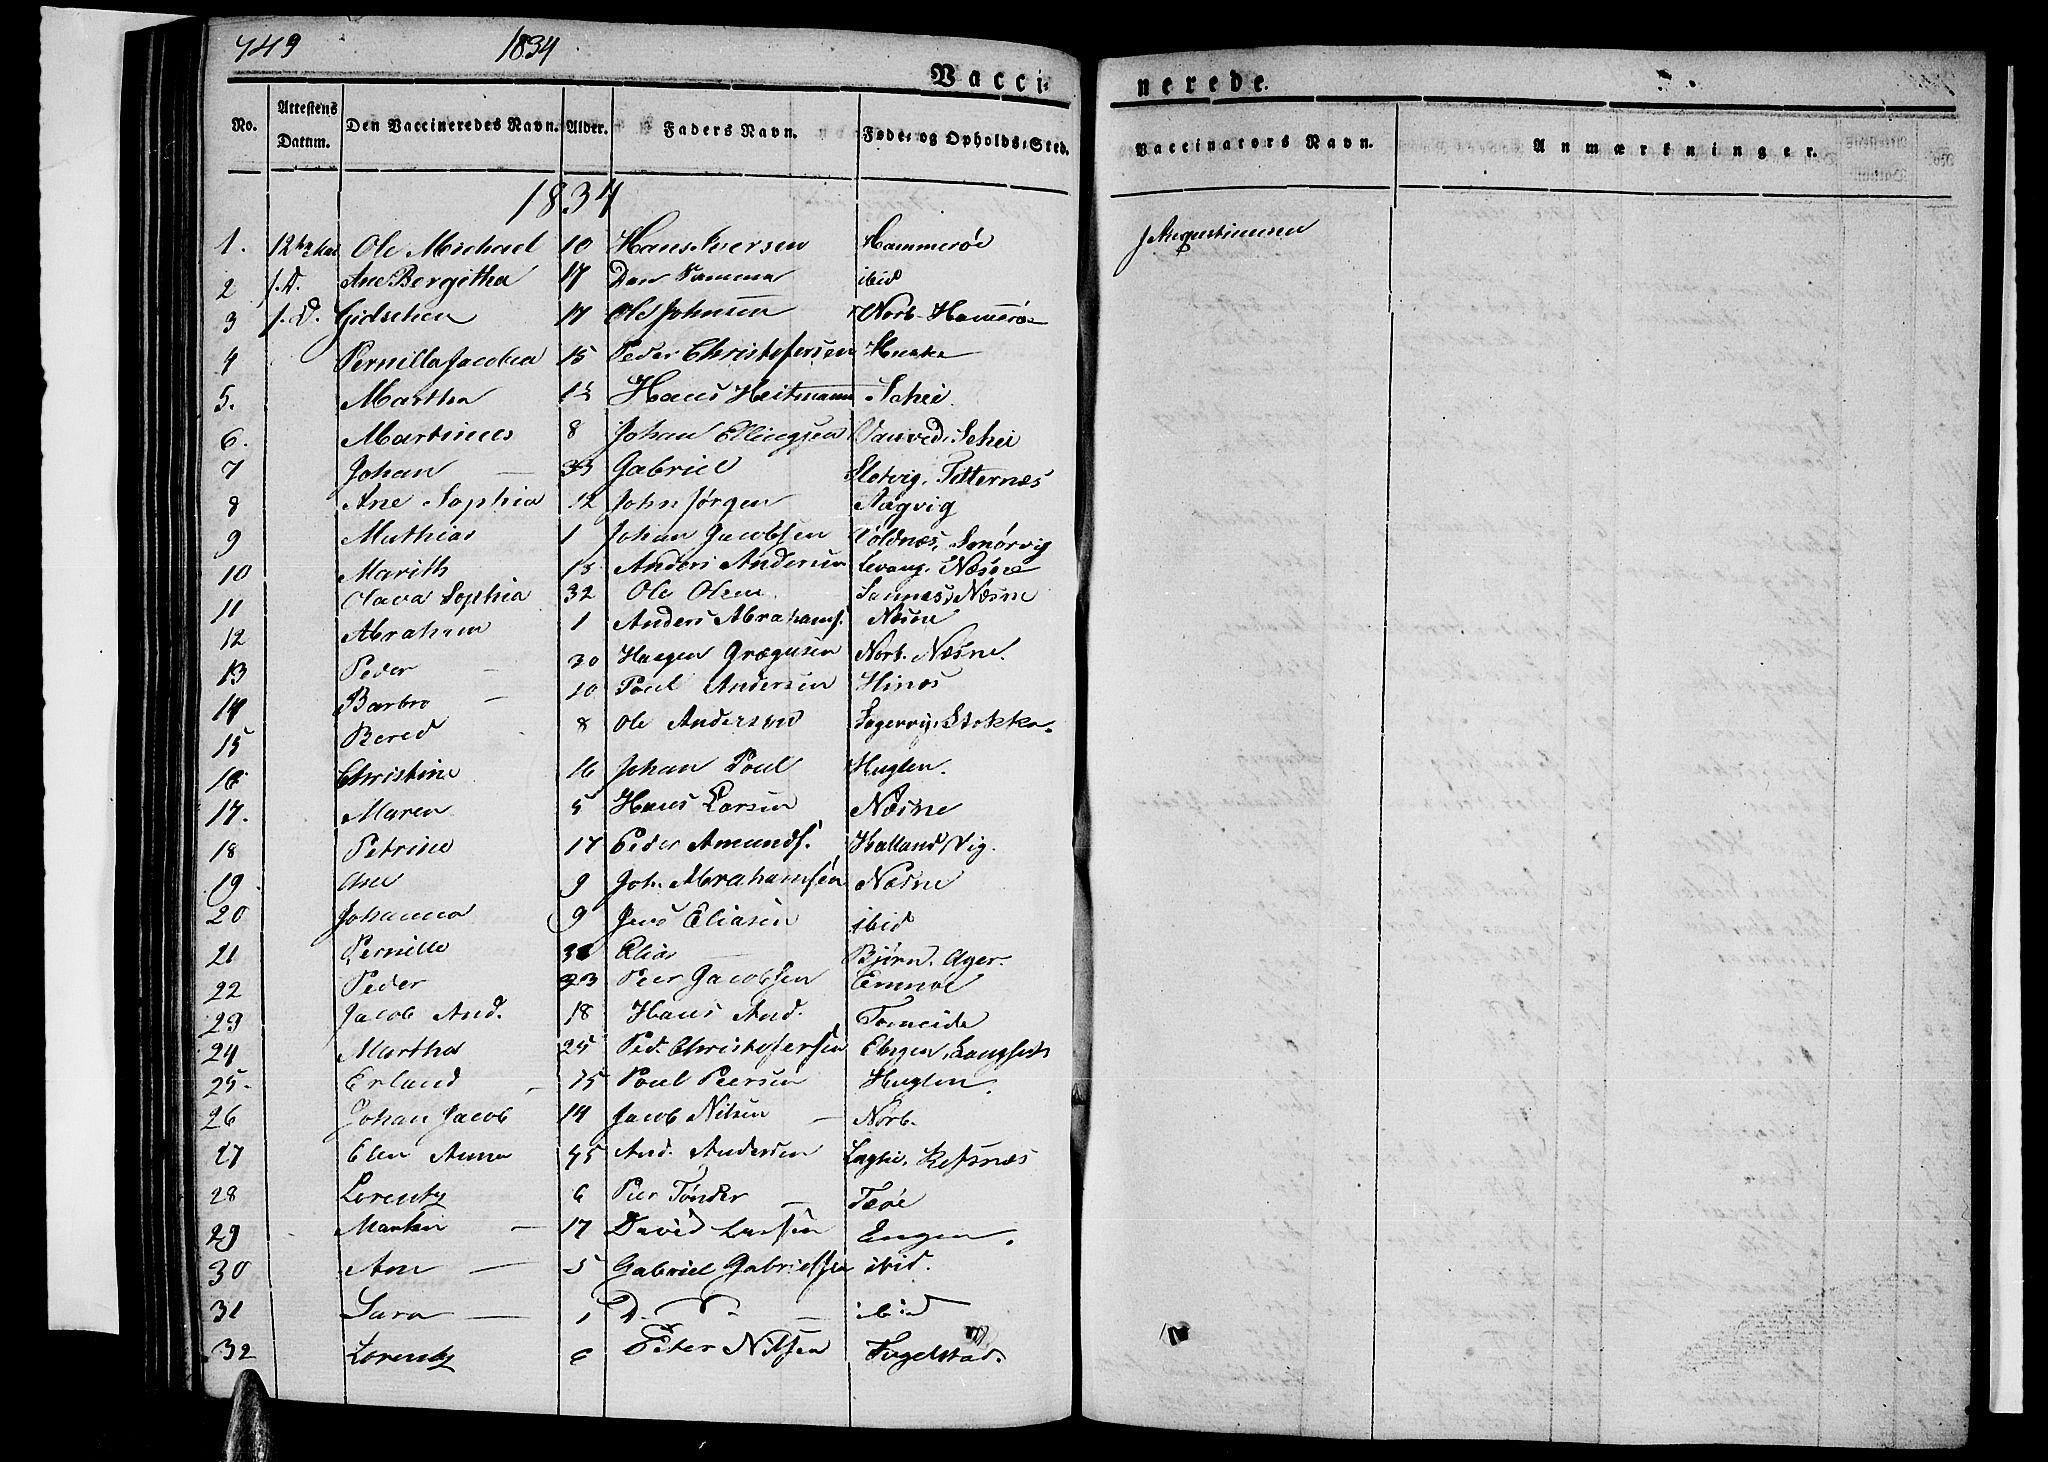 749 1834
Vacci- nerede.
No. Attestens Datum. Den Vaccineredes Navn. Alder. Faders Navn. Føde- og Opholds-Sted. Vaccinators Navn. Anmærkninger.
1834
1. 12 Ole Michael 10 Hans Iversen Hammerøe J Augustinusen
2 f. D. Ane Bergitha 17 Den Samme ibid
3 f. D. 17 Ole Johnsen Norb. Hamerøe
4 Pernilla Jacobea 15 Peder Christofersen Huske
5. Martha 15 Hans Heitmann Schei
6. Martinus 8 Johan Ellingsen Schei
7 Johan 33 Gabriel Slotvig, Titternæs
8 Ane Sophia 12 John Jørgen Aagvig
9 Mathias 1 Johan Jacobsen Coldnæs, Smørvig
10 Marith 15 Anders Andersen Levang, Næsne
11 Olava Sophia 32 Ole Olsen Sannes, Næsne
12 Abraham 1 Anders Abrahams. Næsne
13 Peder 30 Haagen Græguson Norb. Næsne.
14 Barbro 10 Poul Andersen Hinæs
15 Bered 8 Ole Andersen Stokka.
16 Christine 16 Johan Poul Huglen.
17. Maren 5 Hans Larsen Næsne
18 Petrine 17 Peder Amunds. Halland, Vig.
19. 9 Joh. Abrahamsen Næsne
20 Johanna 9 Jens Eliasen ibid
21 Pernille Elias Bjørn. Ager.
22 Peder 23 Peer Jacobsen Emnøe
23 Jacob And. 18 Hans And. Forneide
24 Martha 25 Ped. Christofersen Langset
25. Erland 15 Poul Peersen Huglen.
26 Johan Jacob 14 Jacob Nilsen Norb.
27 Elen Anna 45 And. Andersen Refsnæs
28 Lorentz 6 Peer Tønder
29 Martin 17 David Larsen Engen.
30 Ane 5 Gabriel Gabrielsen ibid.
31 Sara 1 D. ibid
32 Lorentz 6 Peter Nilsen Fugelstad.